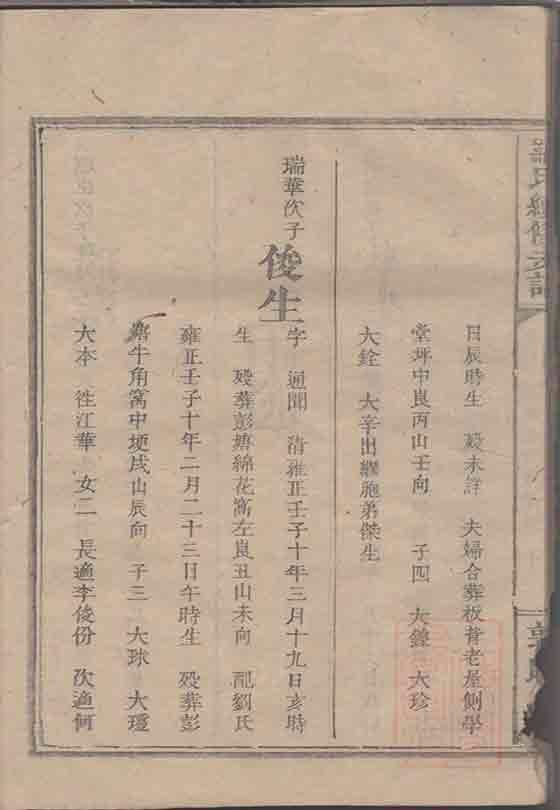 氏續修支譜
日辰時生 歿未詳 夫婦合葬板背老屋側學
堂坪中艮丙山壬向 子四 大鐘 大珍
大銓 大辛出繼胞弟傑生
瑞華次子
俊生
字 通聞 清雍正壬子十年三月十九日亥時
生 歿葬彭塘綿花窩左艮丑山未向 配劉氏
雍正壬子十年二月二十三日午時生 歿葬彭
塘牛角窩中埂戌山辰向 子三 大球 大瓊
大本 徃江華 女二 長適李俊份 次適何